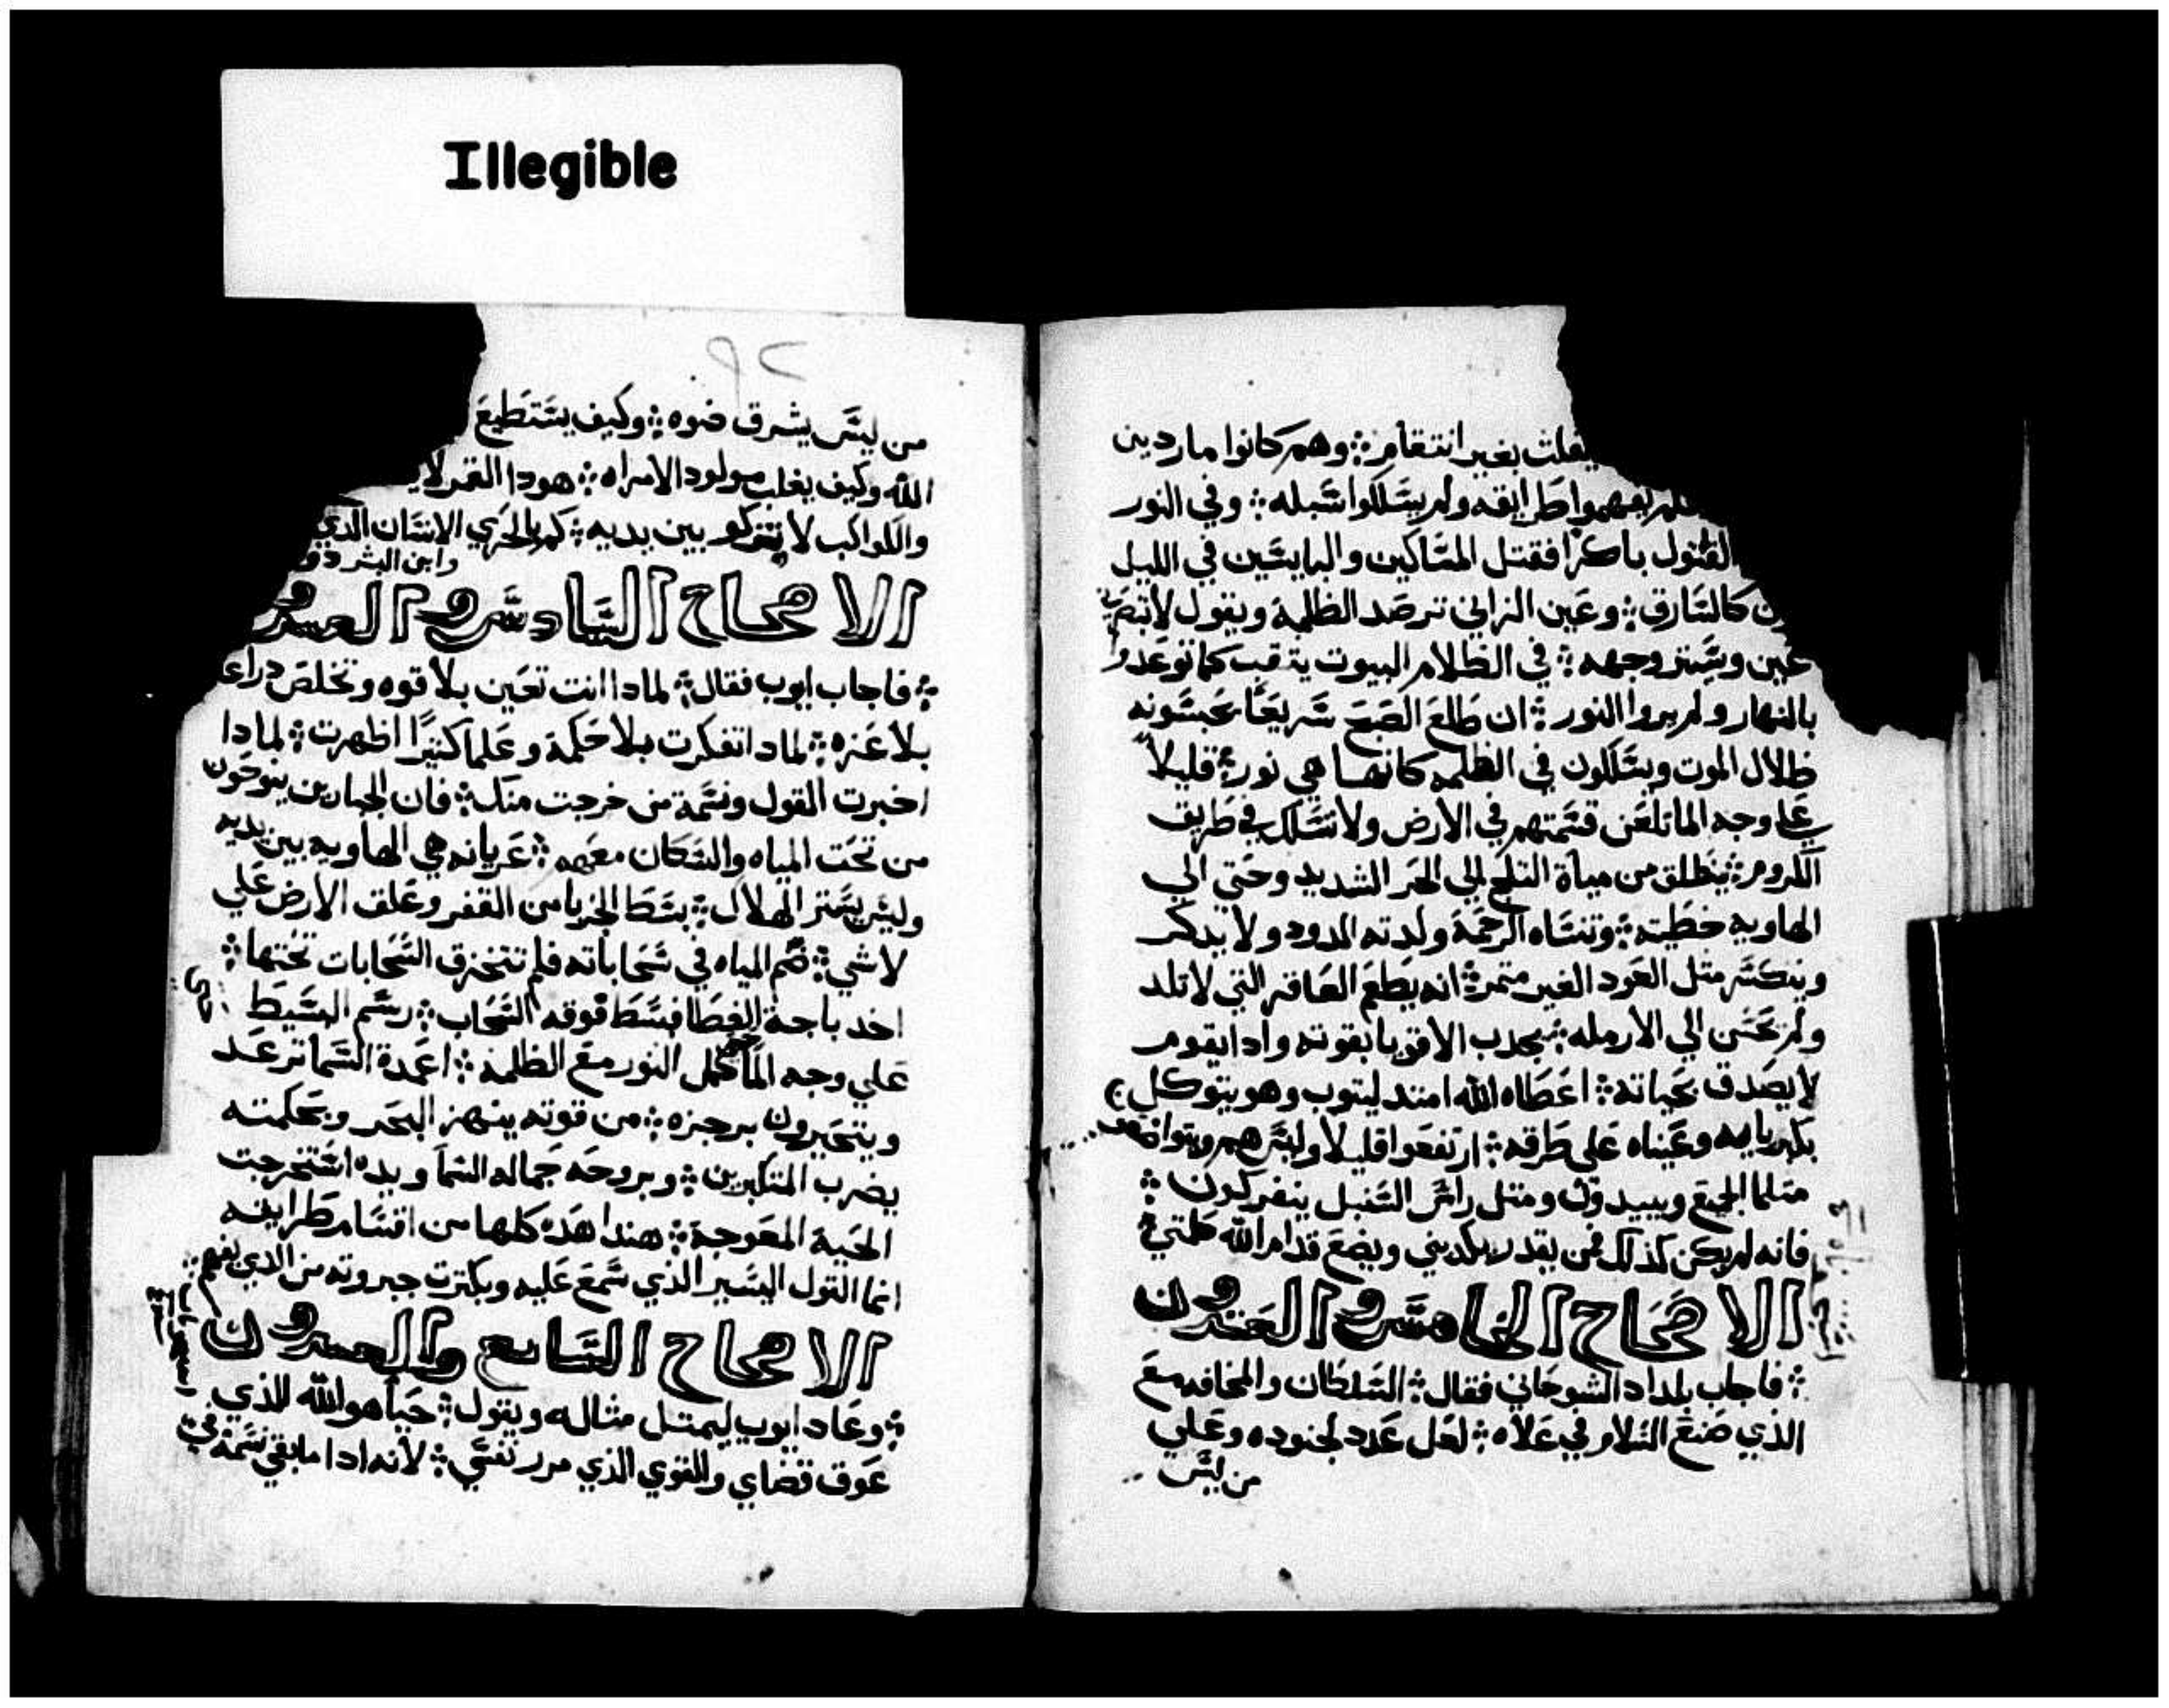 Illegible
يفلت بغير انتقام ؛ وهم كانوا ماردين
يفهموا طرايقه ولم يسلكوا سبله ؛ وفي النور
القتول باكرًا فقتل المساكين والبايسين في الليل
كالسارق ؛ وعين الزاني ترصد الظلمة ويقول لا تبصرني
عين ويستر وجهه ؛ في الظلام البيوت ينقب كما توعدوا
بالنهار ولم يروا النور ؛ ان طلع الصبح سريعًا يحسبونه
ظلال الموت ويسلكون في الظلمه كانها هي نور ؛ قليلاً
علي وجه الما تلعن قسمتهم في الارض ولا تسلك في طريف
الكروم ؛ ينطلق من مياة الثلج الي الحر الشديد وحتي الي
الهاوية خطيته ؛ وتنساه الرحمة ولدته الدود ولا يدكر
وينكسر مثل العود الغير متمر ؛ انه يطعم العاقر التي لا تلد
ولم يحسن الي الارمله ؛ يجدب الاقويا بقوته وادا يقوم
لا يصدق بحياته ؛ اعطاه الله امند ليتوب وهو يتوكل
وعيناه علي طرقه ؛ ارتفعوا قليلا وليس هم ويتواضعون
مثلما الجميع ويبيدون ومثل راس السنبل ينفركون ؛
فانه لم يكن كذلك فمن يقدر يكدبني ويضع قدام الله كلمتي ؛
الاصحاح الخامس والعشرون
؛ فاجاب بلداد الشوحاني فقال ؛ السلطان والمخافه مع
الذي صنع السلام في علاه ؛ لعل عدد لجنوده وعلي
من ليس
٩٢
من ليس يشرق ضوه ؛ وكيف يستطيع
الله وكيف يغلب مولود الامراه ؛ هودا القمر لا
والكواكب لا بين يديه ؛ كم بالحري الانسان الذي
وابن البشر دود
الاصحاح السادس والعشرو
؛ فاجاب ايوب فقال ؛ لمادا انت تعين بلا قوه وتخلص دراع
بلا عزه ؛ لمادا تفكرت بلا حكمة وعلمًا كثيرًا اظهرت ؛ لمادا
اخبرت القول ونسمة من خرجت منك ؛ فان الجبارين ينوحون
من تحت المياه والسكان معهم ؛ عريانه هي الهاويه بين يديه
وليس يستر الهلاك ؛ بسط الجربيا من القفر وعلق الارض علي
لا شي ؛ ضم المياه في سحاباته فلم تتخرق السحابات تحتها ؛
اخد باجة الغطا فبسط فوقه السحاب ؛ رسم البسيط
علي وجه الما النور مع الظلمة ؛ اعمدة السما ترعد
ويتحيرون برجزه ؛ من قوته ينهز البحر وبحكمته
يضرب المتكبرين ؛ وبروحه جماله السما ويده استخرجت
الحية المعوجة ؛ هندا هده كلها من اقسام طرايقه
انما القول اليسير الذي سمع عليه وبكترت جبروته من الدي يفهم ؛
الاصحاح السابع والعسرون
؛ وعاد ايوب ليمثل مثاله ويقول ؛ حيًا هو الله الذي
عوق قضاي والقوي الذي مرر نفسي ؛ لانه ادا ما بقي نسمة في